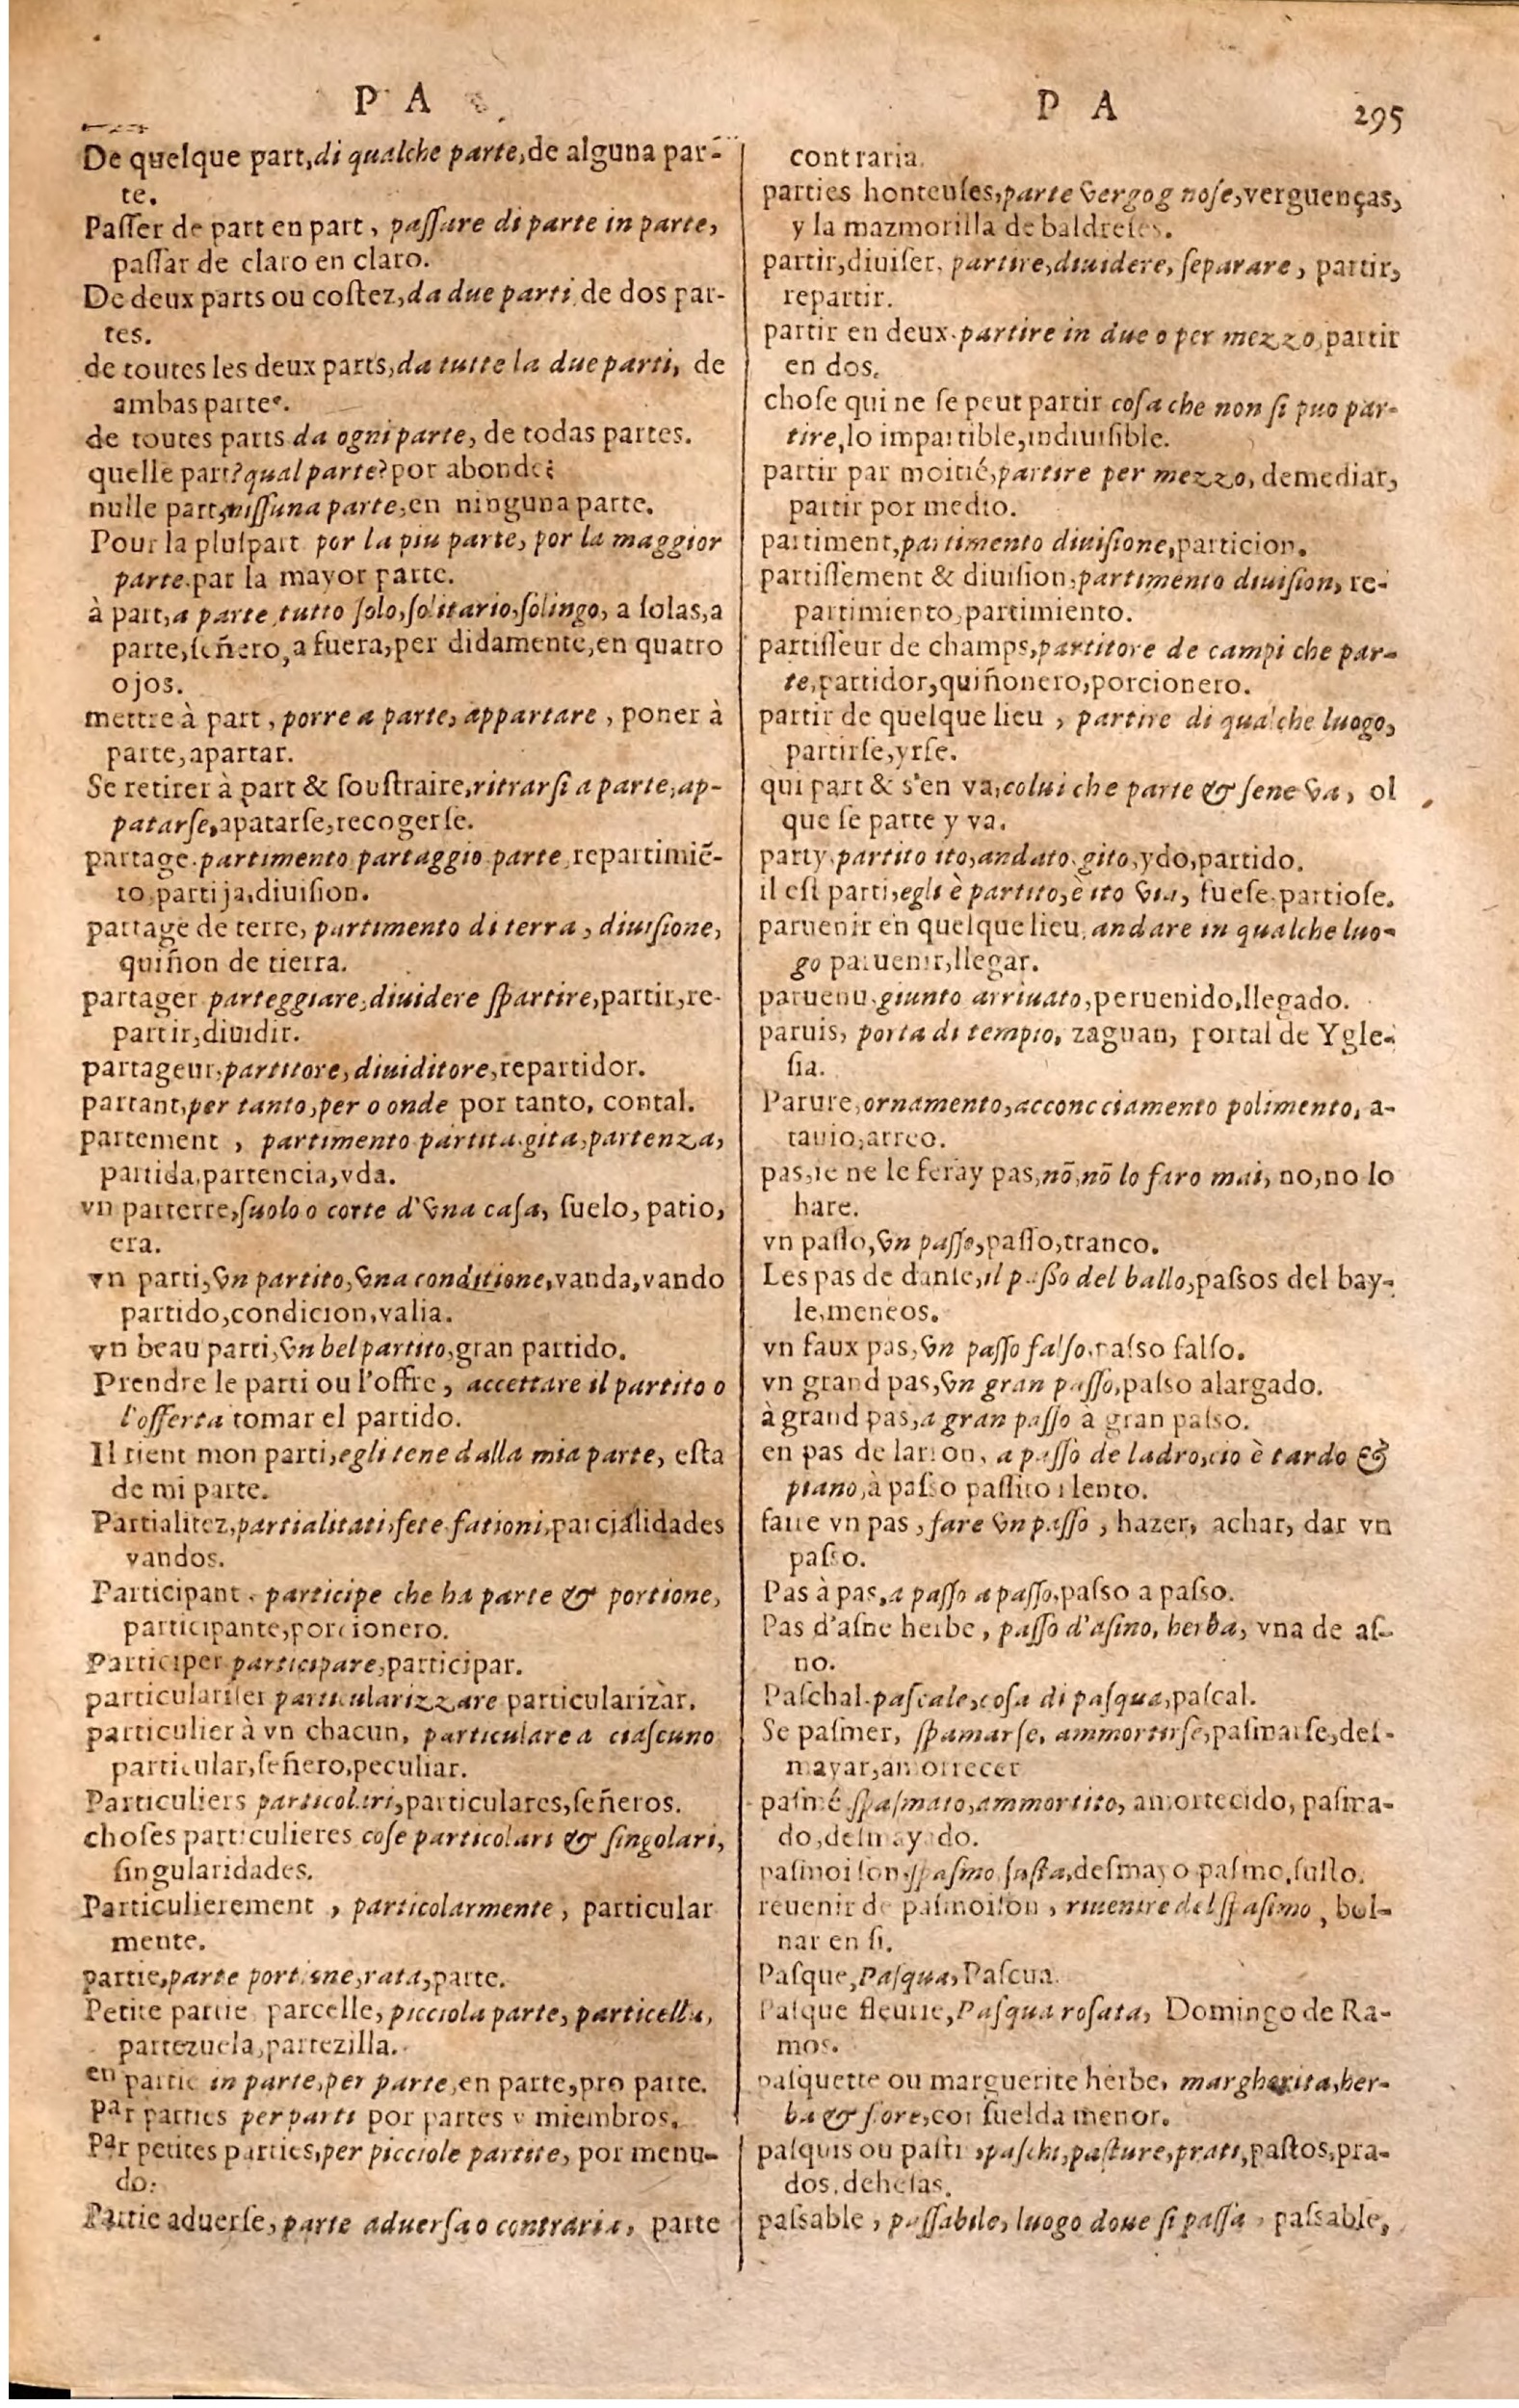 P A
De quelque part,di qualche parte,de alguna par-
te.
Paſſer de part en part, paſſare di parte in parte,
paſſar de claro en claro.
De deux parts ou coſtez,da due parti de dos par-
tes.
de toutes les deux parts,da tutte la due parti, de
ambas partes.
de toutes parts da ogni parte, de todas partes.
quelle part?qual parte?por abonde:
nulle part,niſſuna parte,en ninguna parte.
Pour la pluſpart por la piu parte, por la maggior
parte.par la mayor parte.
à part,a parte tutto ſolo,ſolitario,ſolingo, a ſolas,a
parte,ſeñero,a fuera,per didamente,en quatro
ojos.
mettre à part, porre a parte, appartare, poner à
parte,apartar.
Se retirer à part & ſouſtraire,ritrarſi a parte,ap-
patarſe,apatarſe,recogerſe.
partage.partimento partaggio parte repartimiē-
to,partija,diuiſion.
partage de terre, partimento di terra, diuiſione,
quiñon de tierra.
partager parteggiare,diuidere ſpartire,partir,re-
partir,diuidir.
partageur,partitore,diuiditore,repartidor.
partant,per tanto,per o onde por tanto, contal.
partement, partimento partita.gita,partenza,
partida,partencia,yda.
vn parterre,ſuolo o corte d'vna caſa, ſuelo, patio,
era.
vn parti,vn partito,vna conditione,vanda,vando
partido,condicion,valia.
vn beau parti,vn bel partito,gran partido.
Prendre le parti ou l'offre, accettare il partito o
l'offerta tomar el partido.
Il tient mon parti,egli tene dalla mia parte, eſta
de mi parte.
Partialitez,partialitati,ſete fationi,parcialidades
vandos.
Participant, participe che ha parte & portione,
participante,porcionero.
Participer participare,participar.
particulariſer particularizzare particularizàr.
particulier à vn chacun, particulare a ciaſcuno
particular,ſeñero,peculiar.
Particuliers particolari,particulares,ſeñeros.
choſes particulieres coſe particolari & ſingolari,
ſingularidades.
Particulierement, particolarmente, particular
mente.
partie,parte portione,rata,parte.
Petite partie parcelle, picciola parte, particella,
partezuela,partezilla.
en partie in parte,per parte,en parte,pro parte.
Par parties per parti por partes y miembros.
Par petites parties,per picciole partite, por menu-
do:
Partie aduerſe, parte aduerſa o contraria, parte
P A 295
contraria.
parties honteuſes,parte vergog noſe,verguenças,
y la mazmorilla de baldreſes.
partir,diuiſer, partire,diuidere, ſeparare, partir,
repartir.
partir en deux.partire in due o per mezzo,partir
en dos.
choſe qui ne ſe peut partir coſa che non ſi puo par-
tire,lo impartible,indiuiſible.
partir par moitié,partire per mezzo, demediar,
partir por medio.
partiment,partimento diuiſione,particion.
partiſſement & diuiſion,partimento diuiſion, re-
partimiento,partimiento.
partiſſeur de champs,partitore de campi che par-
te,partidor,quiñonero,porcionero.
partir de quelque lieu, partire di qualche luogo,
partirſe,yrſe.
qui part & s'en va,colui che parte & ſene va, ol
que ſe parte y va.
party.partito ito,andato.gito,ydo,partido.
il eſt parti,egli è partito,è ito via, fueſe.partioſe.
paruenir en quelque lieu.andare in qualche luo-
go paruenir,llegar.
paruenu.giunto arriuato,peruenido,llegado.
paruis, porta di tempio, zaguan, portal de Ygle-
ſia.
Parure,ornamento,acconcciamento polimento, a-
tauio,arreo.
pas,ie ne le feray pas,nō,nō lo faro mai, no,no lo
hare.
vn paſſo,vn paſſo,paſſo,tranco.
Les pas de danſe,il paſſo del ballo,paſsos del bay-
le,meneos.
vn faux pas,vn paſſo falſo.paſso falſo.
vn grand pas,vn gran paſſo,paſso alargado.
à grand pas,a gran paſſo à gran paſso.
en pas de larron, a paſſo de ladro,cio è tardo &
piano,à paſso paſſito i lento.
faire vn pas, fare vn paſſo, hazer, achar, dar vn
paſso.
Pas à pas,a paſſo a paſſo,paſso a paſso.
Pas d'aſne herbe, paſſo d'aſino, herba, vna de aſ-
no.
Paſchal.paſcale,coſa di paſqua,paſcal.
Se paſmer, ſpamarſe, ammortirſe,paſmarſe,deſ-
mayar,amorrecer
paſmé.ſpaſmato,ammortito, amortecido, paſma-
do,deſmayado.
paſmoiſon.ſpaſmo ſuſta,deſmayo paſmo,ſuſto.
reuenir de paſmoiſon, riuenire del ſpaſimo, bol-
nar en ſi.
Paſque,Paſqua,Paſcua.
Paſque fleurie,Paſqua roſata, Domingo de Ra-
mos.
paſquette ou marguerite herbe, margherita,her-
ba & fiore,con ſuelda menor.
paſquis ou paſti,paſchi,paſture,prati,paſtos,pra-
dos,deheſas.
paſsable, paſſabile, luogo doue ſi paſſa, paſsable,